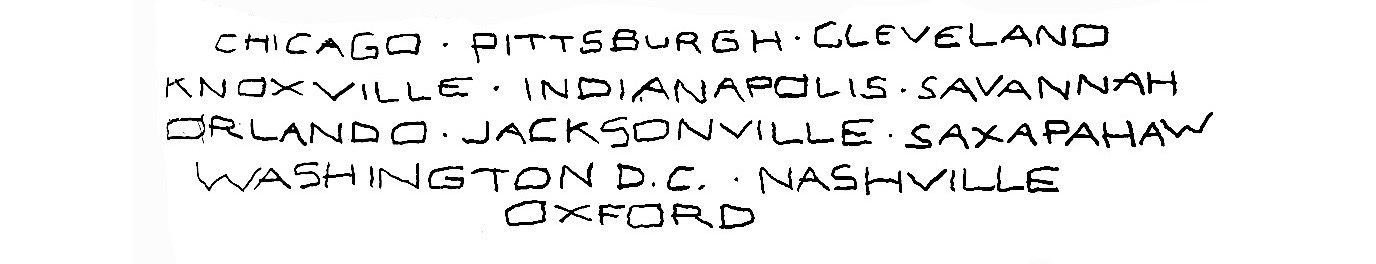 CHICAGO · PITTSBURGH · CLEVELAND
KNOXVILLE · INDIANAPOLIS · SAVANNAH
ORLANDO · JACKSONVILLE · SAXAPAHAW
WASHINGTON D.C. · NASHVILLE
OXFORD